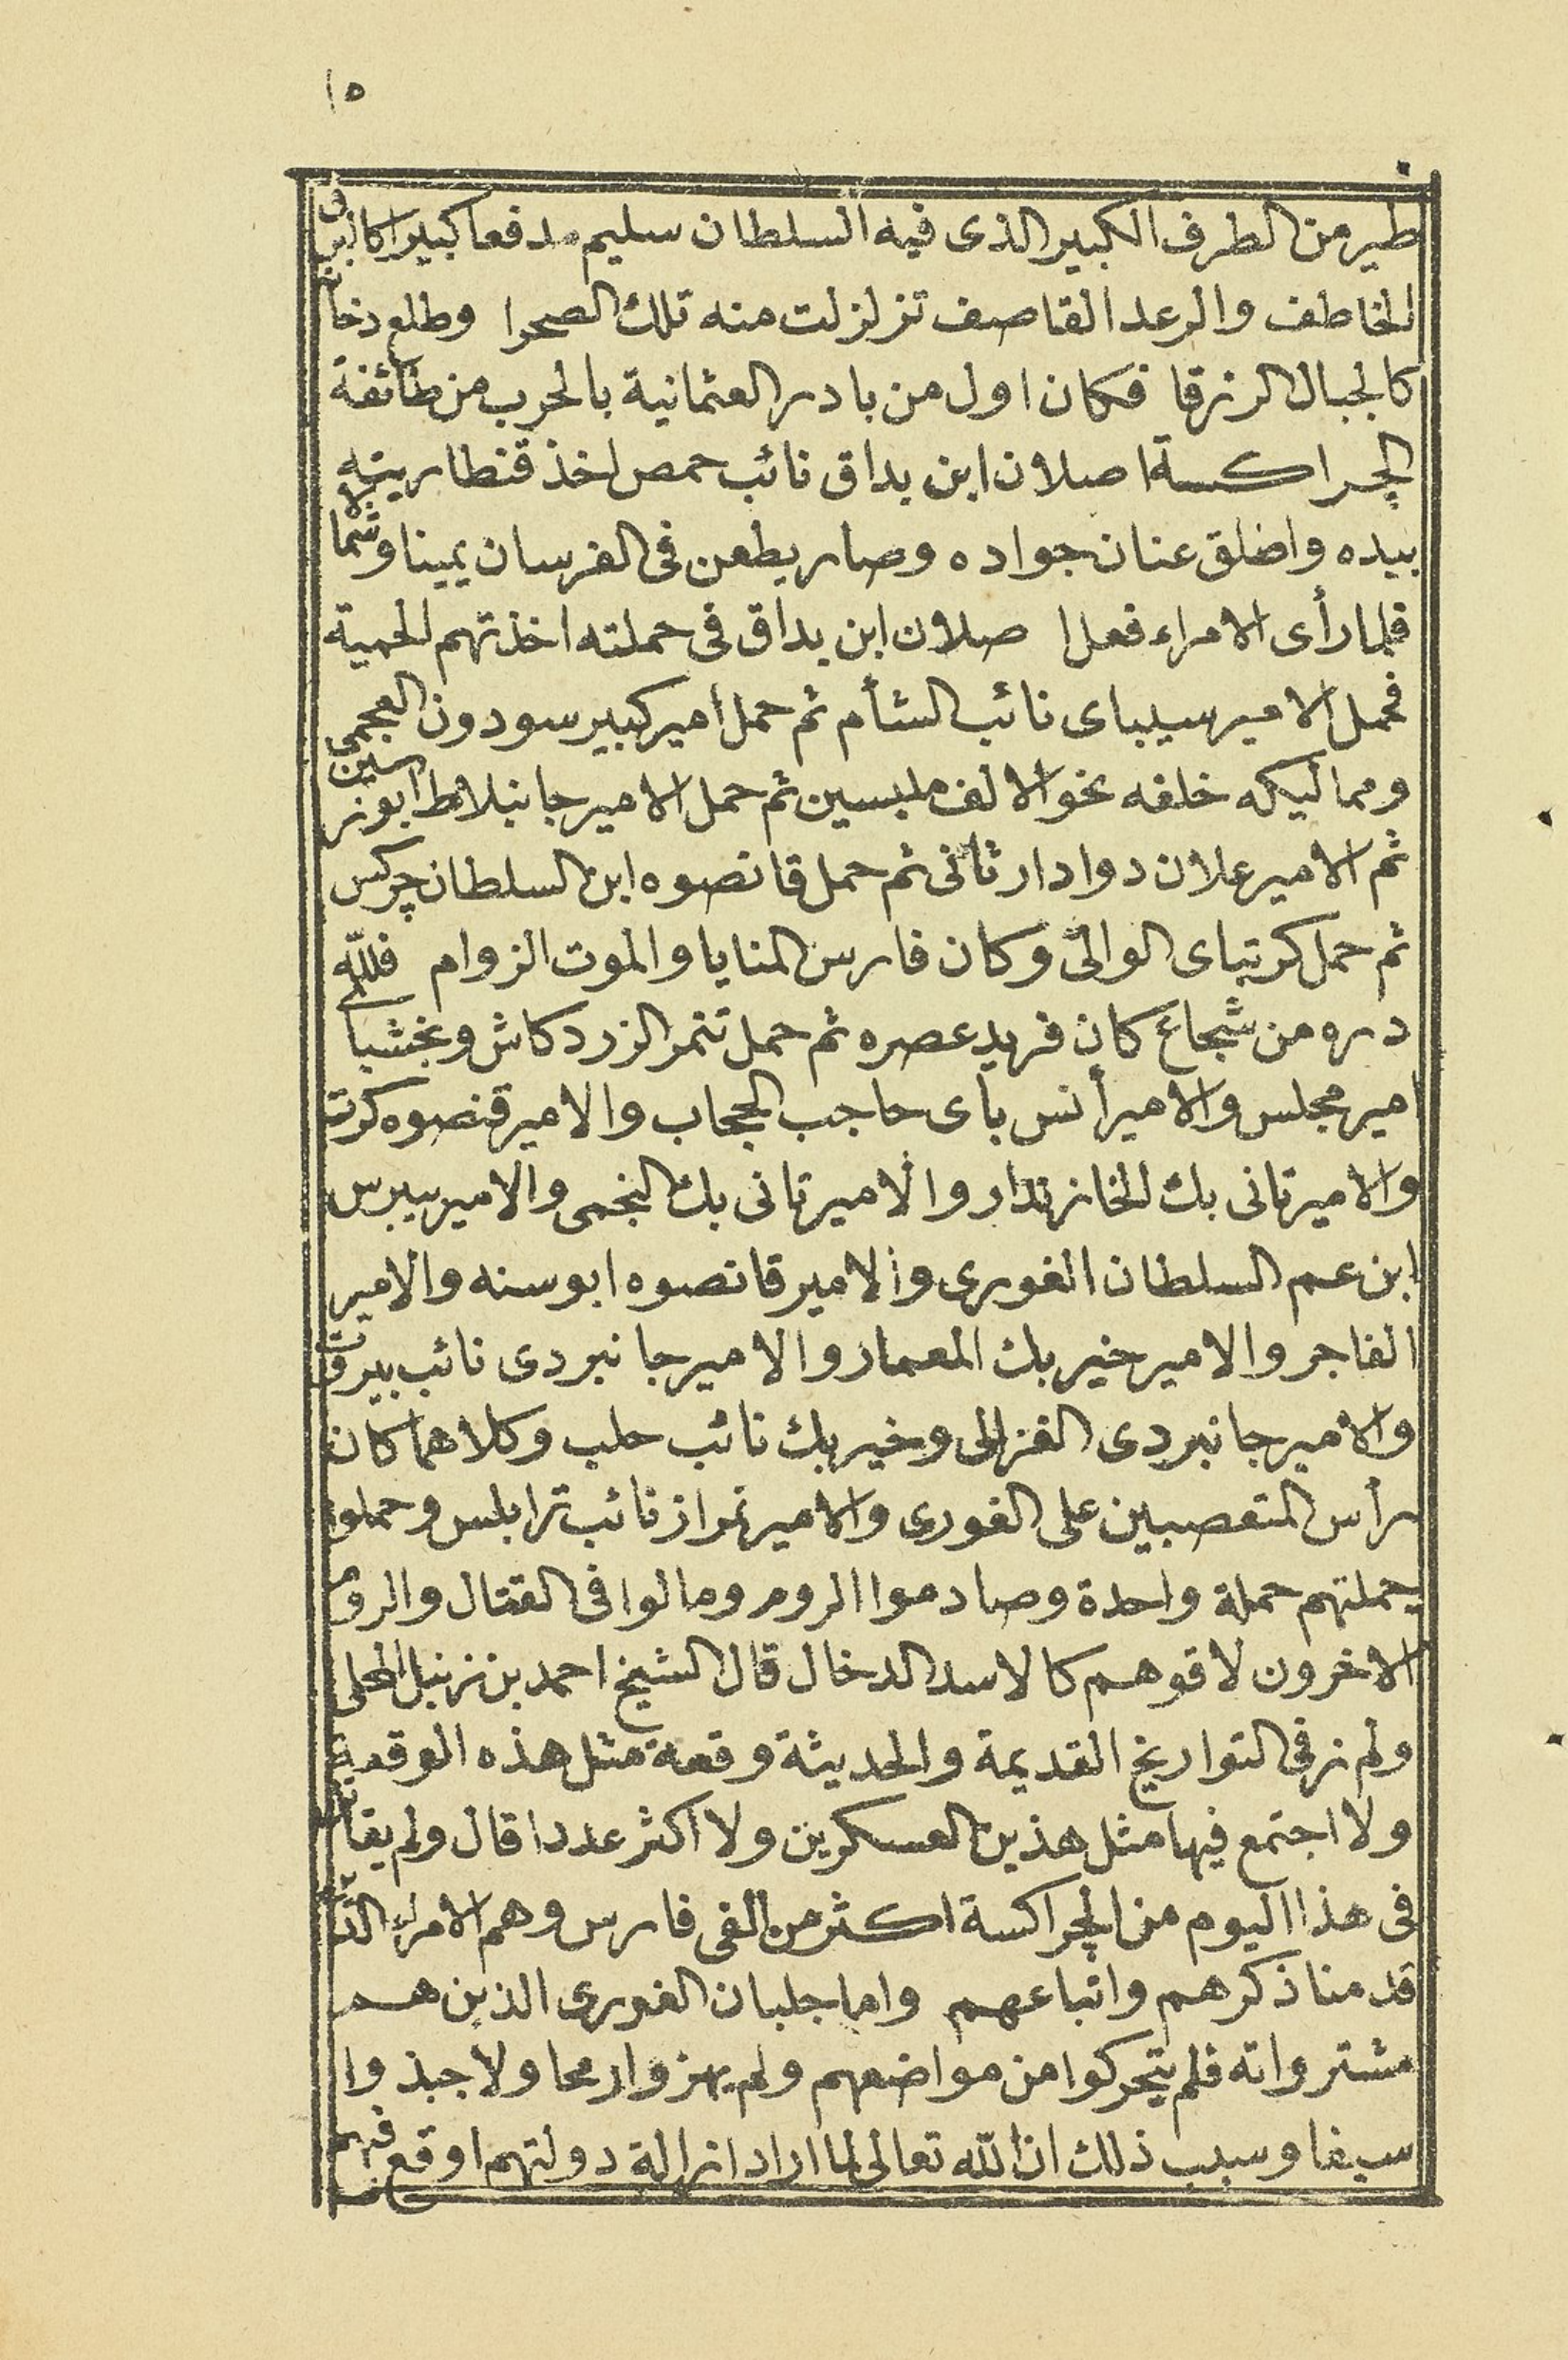 ١٥
طير من الطرف الكبير الذى فيه السلطان سليم مدفعا كبيرا كالبرق
الخاطف والرعد القاصف تزلزلت منه تلك الصحرا وطلع دخانه
كالجبال الزرقا فكان اول من بادر العثمانية بالحرب من طائفة
الچراكسة اصلان ابن بداق نائب حمص اخذ قنطاريته
بيده واضلق عنان جواده وصار يطعن فى الفرسان يمينا وشمالا
فلما رأى الامراء فعل ا صلان ابن بداق فى حملته اخذتهم الحمية
فحمل الامير سيباى نائب الشأم ثم حمل أمير كبير سودون العجمى
ومماليكه خلفه نحو الالف ملبسين ثم حمل الامير جانبلاط ابوترسين
ثم الامير علان دوادار ثانى ثم حمل قانصوه ابن السلطان چركس
ثم حمل كرتباى الوالى وكان فارس المنايا والموت الزوام فللّه
دره من شجاع كان فريد عصره ثم حمل تتمر الزردكاش وبخشباى
امير مجلس والامير أنس باى حاجب الحجاب والامير قنصوه كرت
والامير تانى بك الخازندار والامير تانى بك النجمى والامير بيبرس
ابن عم السلطان الغورى والامير قانصوه ابوسنه والامير
الفاجر والامير خير بك المعمار والامير جانبردى نائب بيروت
والامير جانبردى الغزالى وخير بك نائب حلب وكلاهما كان
رأس المتعصبين على الغورى والامير تمراز نائب ترابلس وحملوا
حملتهم حملة واحدة وصادموا الروم ومالوا فى القتال والروم
الاخرون لاقوهم كالاسد الدخال قال الشيخ احمد بن زنبل المحلى
ولم نر فى التواريخ القديمة والحديثة وقعة مثل هذه الوقعة
ولا اجتمع فيها مثل هذين العسكرين ولا اكثر عددا قال ولم يقاتل
فى هذا اليوم من الچراكسة اكثر من الفى فارس وهم الامراء الذين
قدمنا ذكرهم واتباعهم واما جلبان الغورى الذين هم
مشترواته فلم يتحركوا من مواضعهم ولم يهزوا رمحا ولا جبذوا
سيفا وسبب ذلك ان اللّه تعالى لما اراد ازالة دولتهم اوقع فيهم